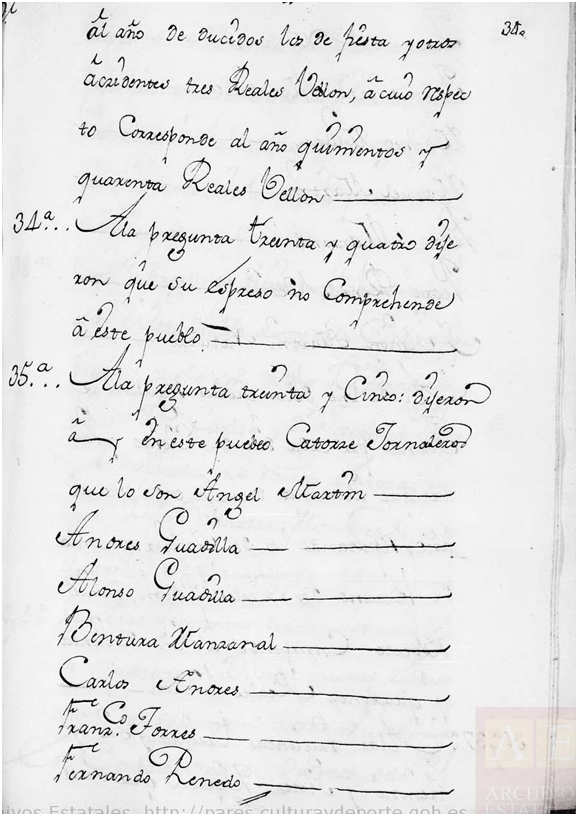 34.
al año de ducidos los de fiesta y otros
aczidentes tres Reales Vellon, a cuio respec
to Corresponde al año quinientos y
quarenta Reales Vellon
34.ª... Ala pregunta treinta y quatro dije
ron que su espreso no Comprehende
a este pueblo
35.ª... Ala pregunta treinta y Cinco: dijeron
ai en este pueblo Catorze Jornaleros
que lo son Angel Martin
Andres Guadilla
Alonso Guadilla
Bentura Manzanal
Carlos Andres
Franz.co Torres
Fernando Renedo
AE
ARCHIVOS
ESTATALES
ivos Estatales http://pares.culturaydeporte.gob.es